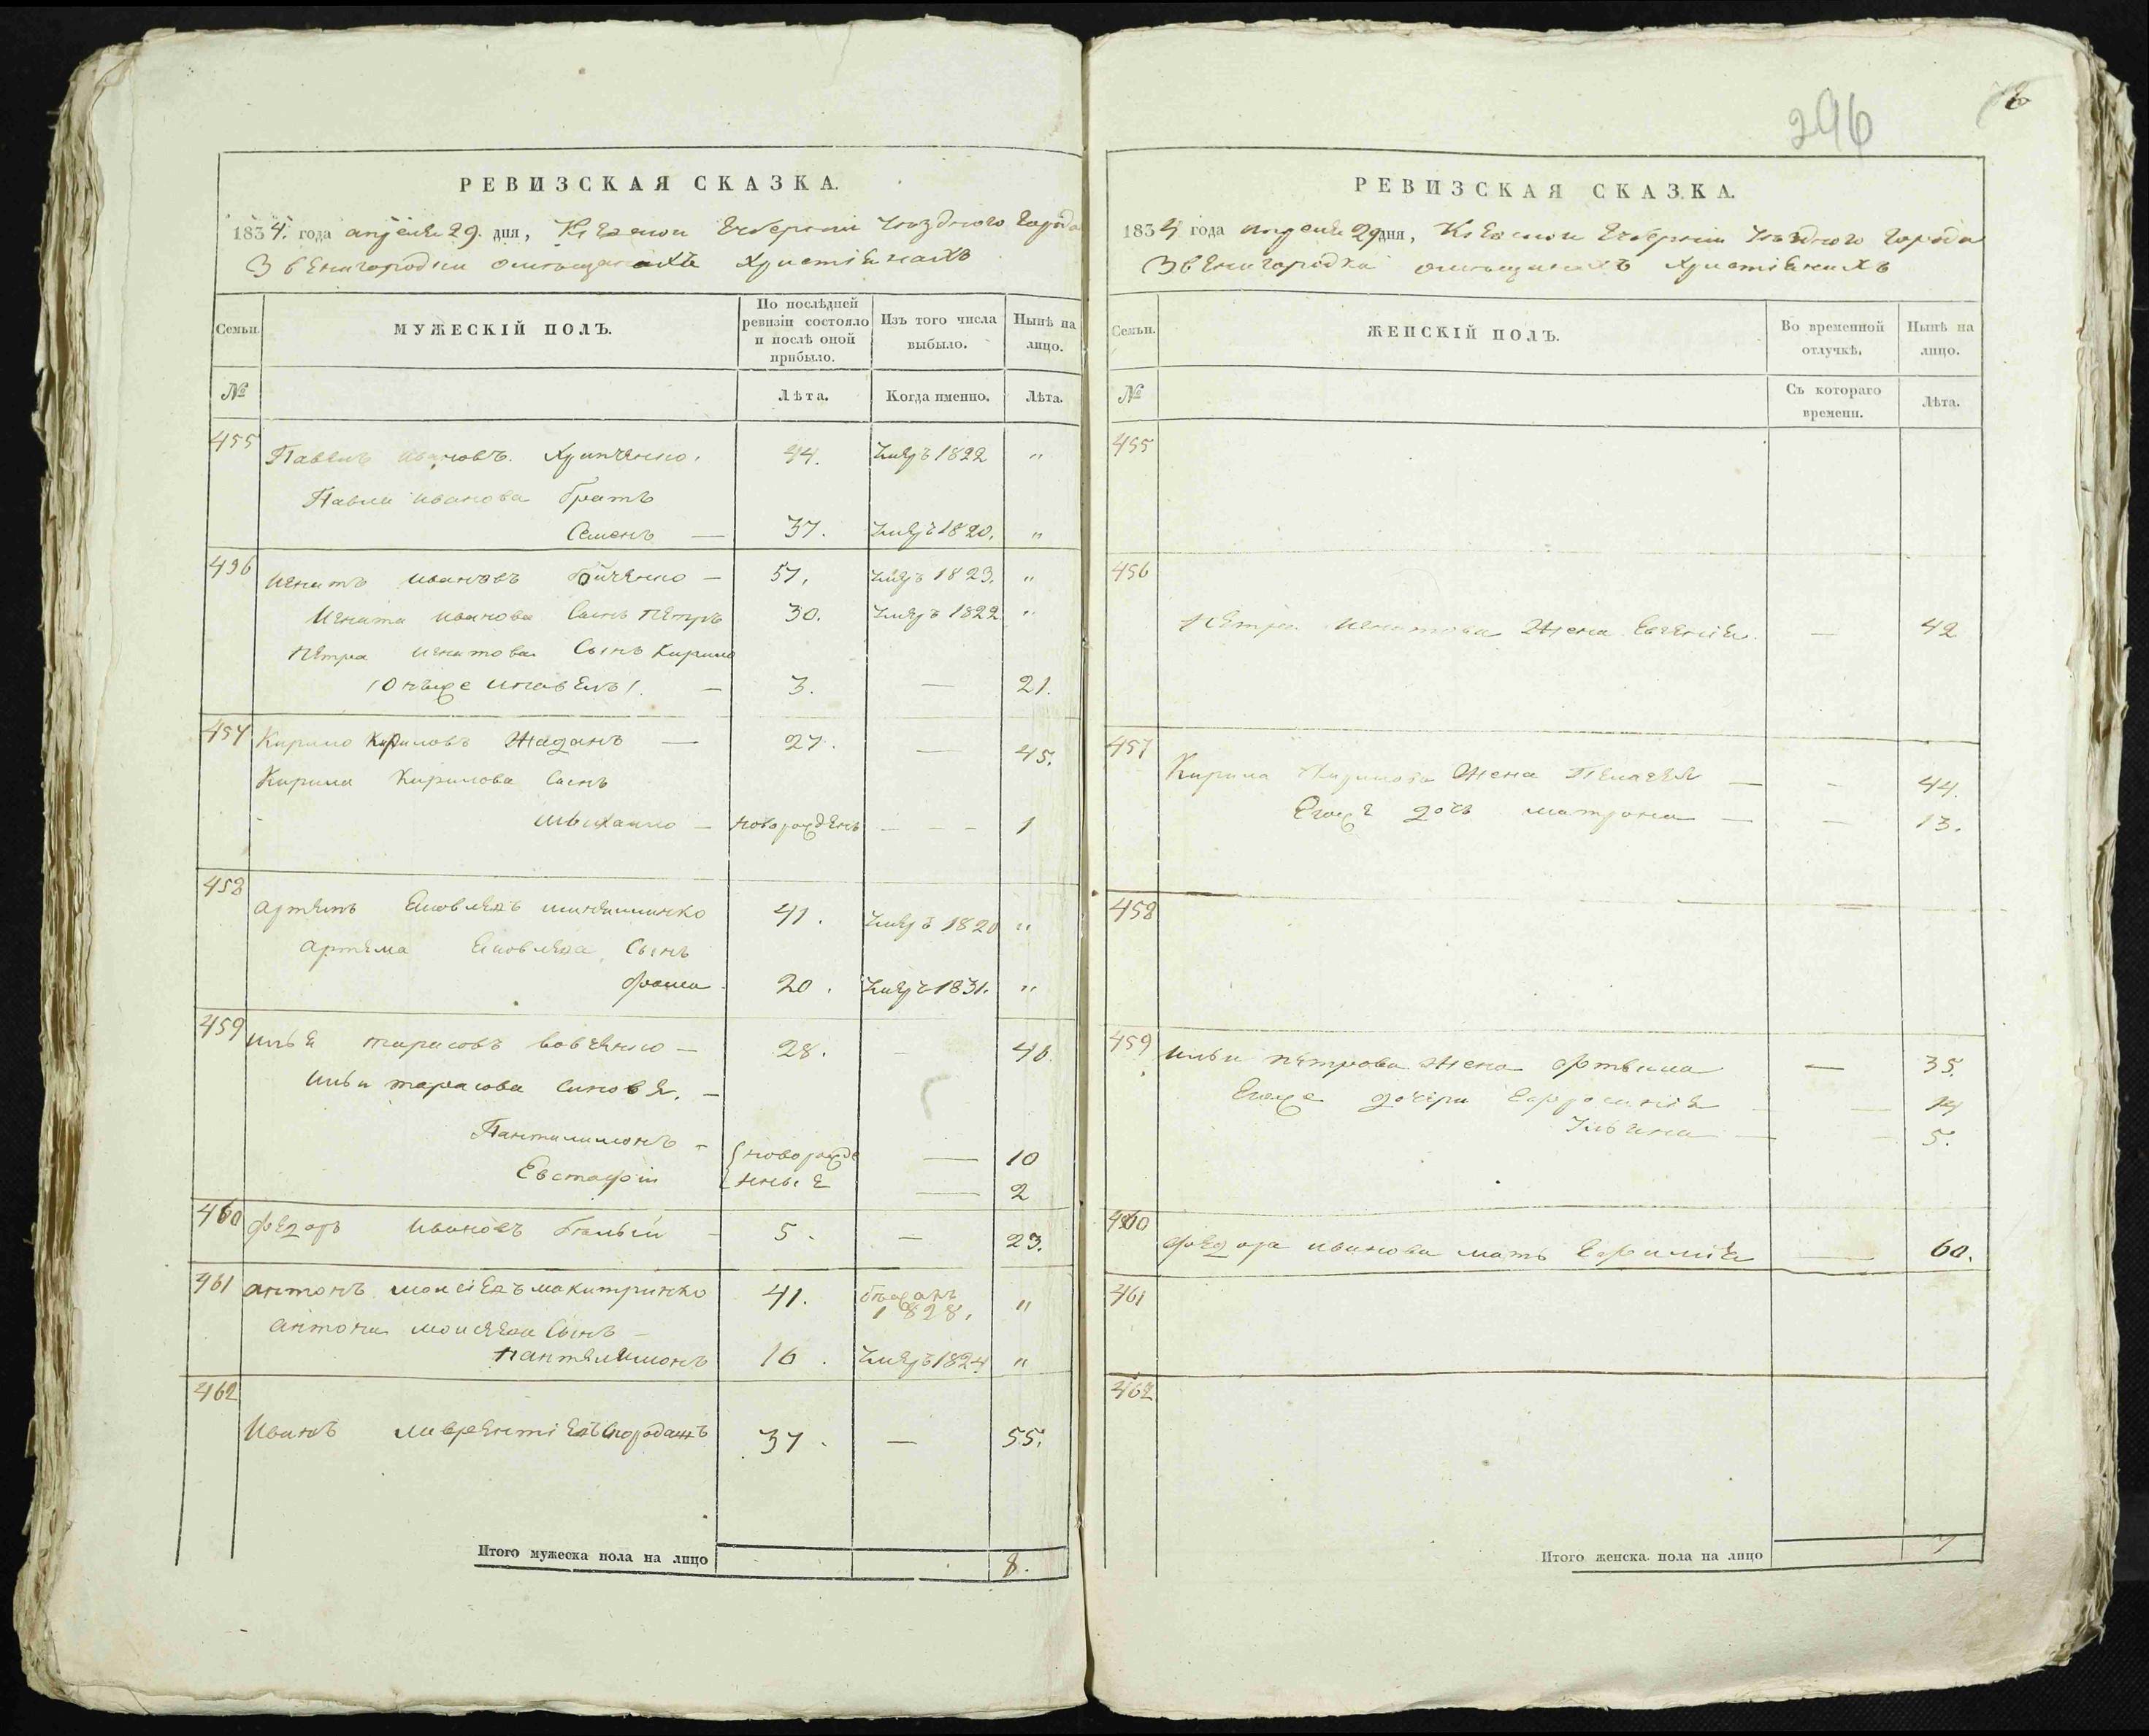 296
РЕВИЗСКАЯ СКАЗКА.
1834. года апреля 29. дня, Киевской Губернии Уездного Города
Звенигородки омещанахъ Христіянахъ
Семьи.
МУЖЕСКІЙ ПОЛЪ.
По послѣдней ревизіи состояло и послѣ оной прибыло.
Изъ того числа выбыло.
Нынѣ на лицо.
№
Лѣта.
Когда именно.
Лѣта.
455
Павелъ Ивановъ Хрипченко. 44. Умеръ 1822 "
Павла Иванова братъ
Семенъ — 37. Умеръ 1820. "
456
Игнатъ Ивановъ — 51. Умеръ 1823. "
Игната Иванова Сынъ Петръ 30. Умеръ 1822 "
Петра Игнатова Сынъ Кирило
(Онъже Павелъ). — 3. — 21.
457
Кирило Кириловъ Жаданъ — 27. — 45.
Кирила Кирилова Сынъ
Михайло — новорожденъ — — — 1
458
Артемъ Яковлевъ 41. Умеръ 1820 "
Артема Яковлева Сынъ
Фома 20. Умеръ 1831. "
459
Илья Тарасовъ Вовченко — 28. -
Ильи Тарасова Синовя. —
Пантилимонъ - новорожде — 10
Евстафій нные — 2
460
Федоръ Ивановъ Белый - 5. — 23.
461
Антонъ Моисіевъ Макитринко 41. бежалъ 1828. "
Антона Моисеева Сынъ —
Пантелимонъ 16. Умеръ 1824 "
462
Иванъ Лаврентіевъ 37. — 55.
Итого мужеска пола на лицо 8.
РЕВИЗСКАЯ СКАЗКА.
1834 года апреля 29 дня, Киевской Губерніи Уездного Города
Звенигородки омещанахъ Христіянахъ
Семьи.
ЖЕНСКІЙ ПОЛЪ.
Во временной отлучкѣ.
Нынѣ на лицо.
№
Съ котораго времени.
Лѣта.
455
456
Петра Игнатова Жена Евгенія. — 42
457
Кирила Кирилова Жена Пелагея — - 44.
Егоже дочь Матрона — — 13.
458
459
Ильи Петрова Жена — 35.
Егоже дочери Ефросинія — 14
Ульяна — - 5.
460
Федора Иванова мать Ефимія — 60.
461
462
Итого женска пола на лицо 7